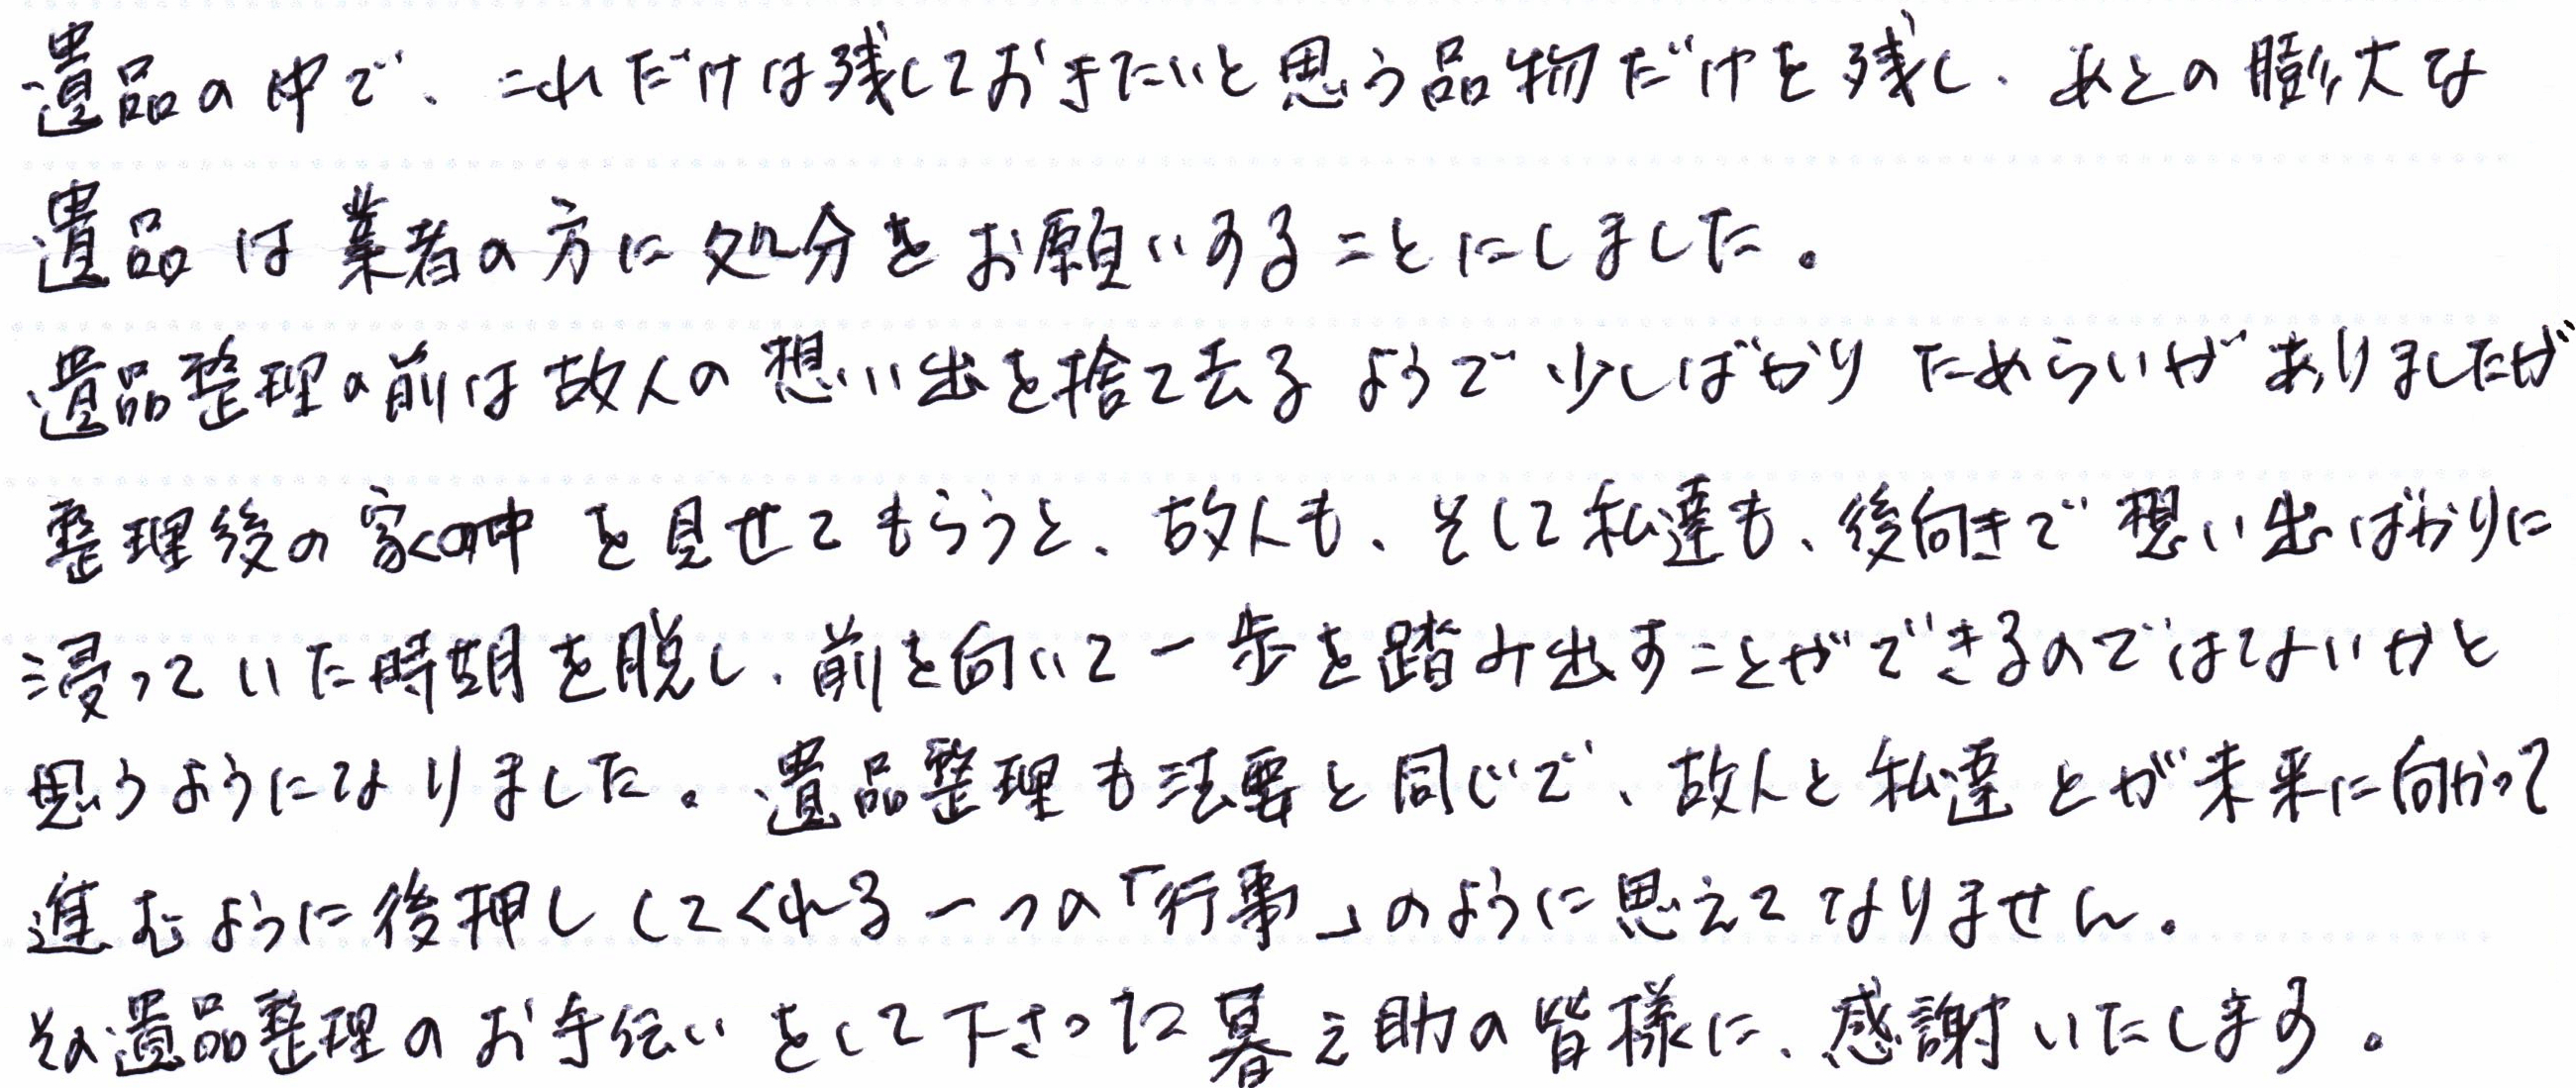 遺品の中で、これだけは残しておきたいと思う品物だけを残し、あとの膨大な
遺品は業者の方に処分をお願いすることにしました。
遺品整理の前は故人の想い出を捨て去るようで少しばかりためらいがありましたが
整理後の家の中を見せてもらうと、故人も、そして私達も、後向きで想い出ばかりに
浸っていた時期を脱し、前を向いて一歩を踏み出すことができるのではないかと
思うようになりました。遺品整理も法要と同じで、故人と私達とが未来に向かって
進むように後押ししてくれる一つの「行事」のように思えてなりません。
その遺品整理のお手伝いをして下さった暮之助の皆様に、感謝いたします。